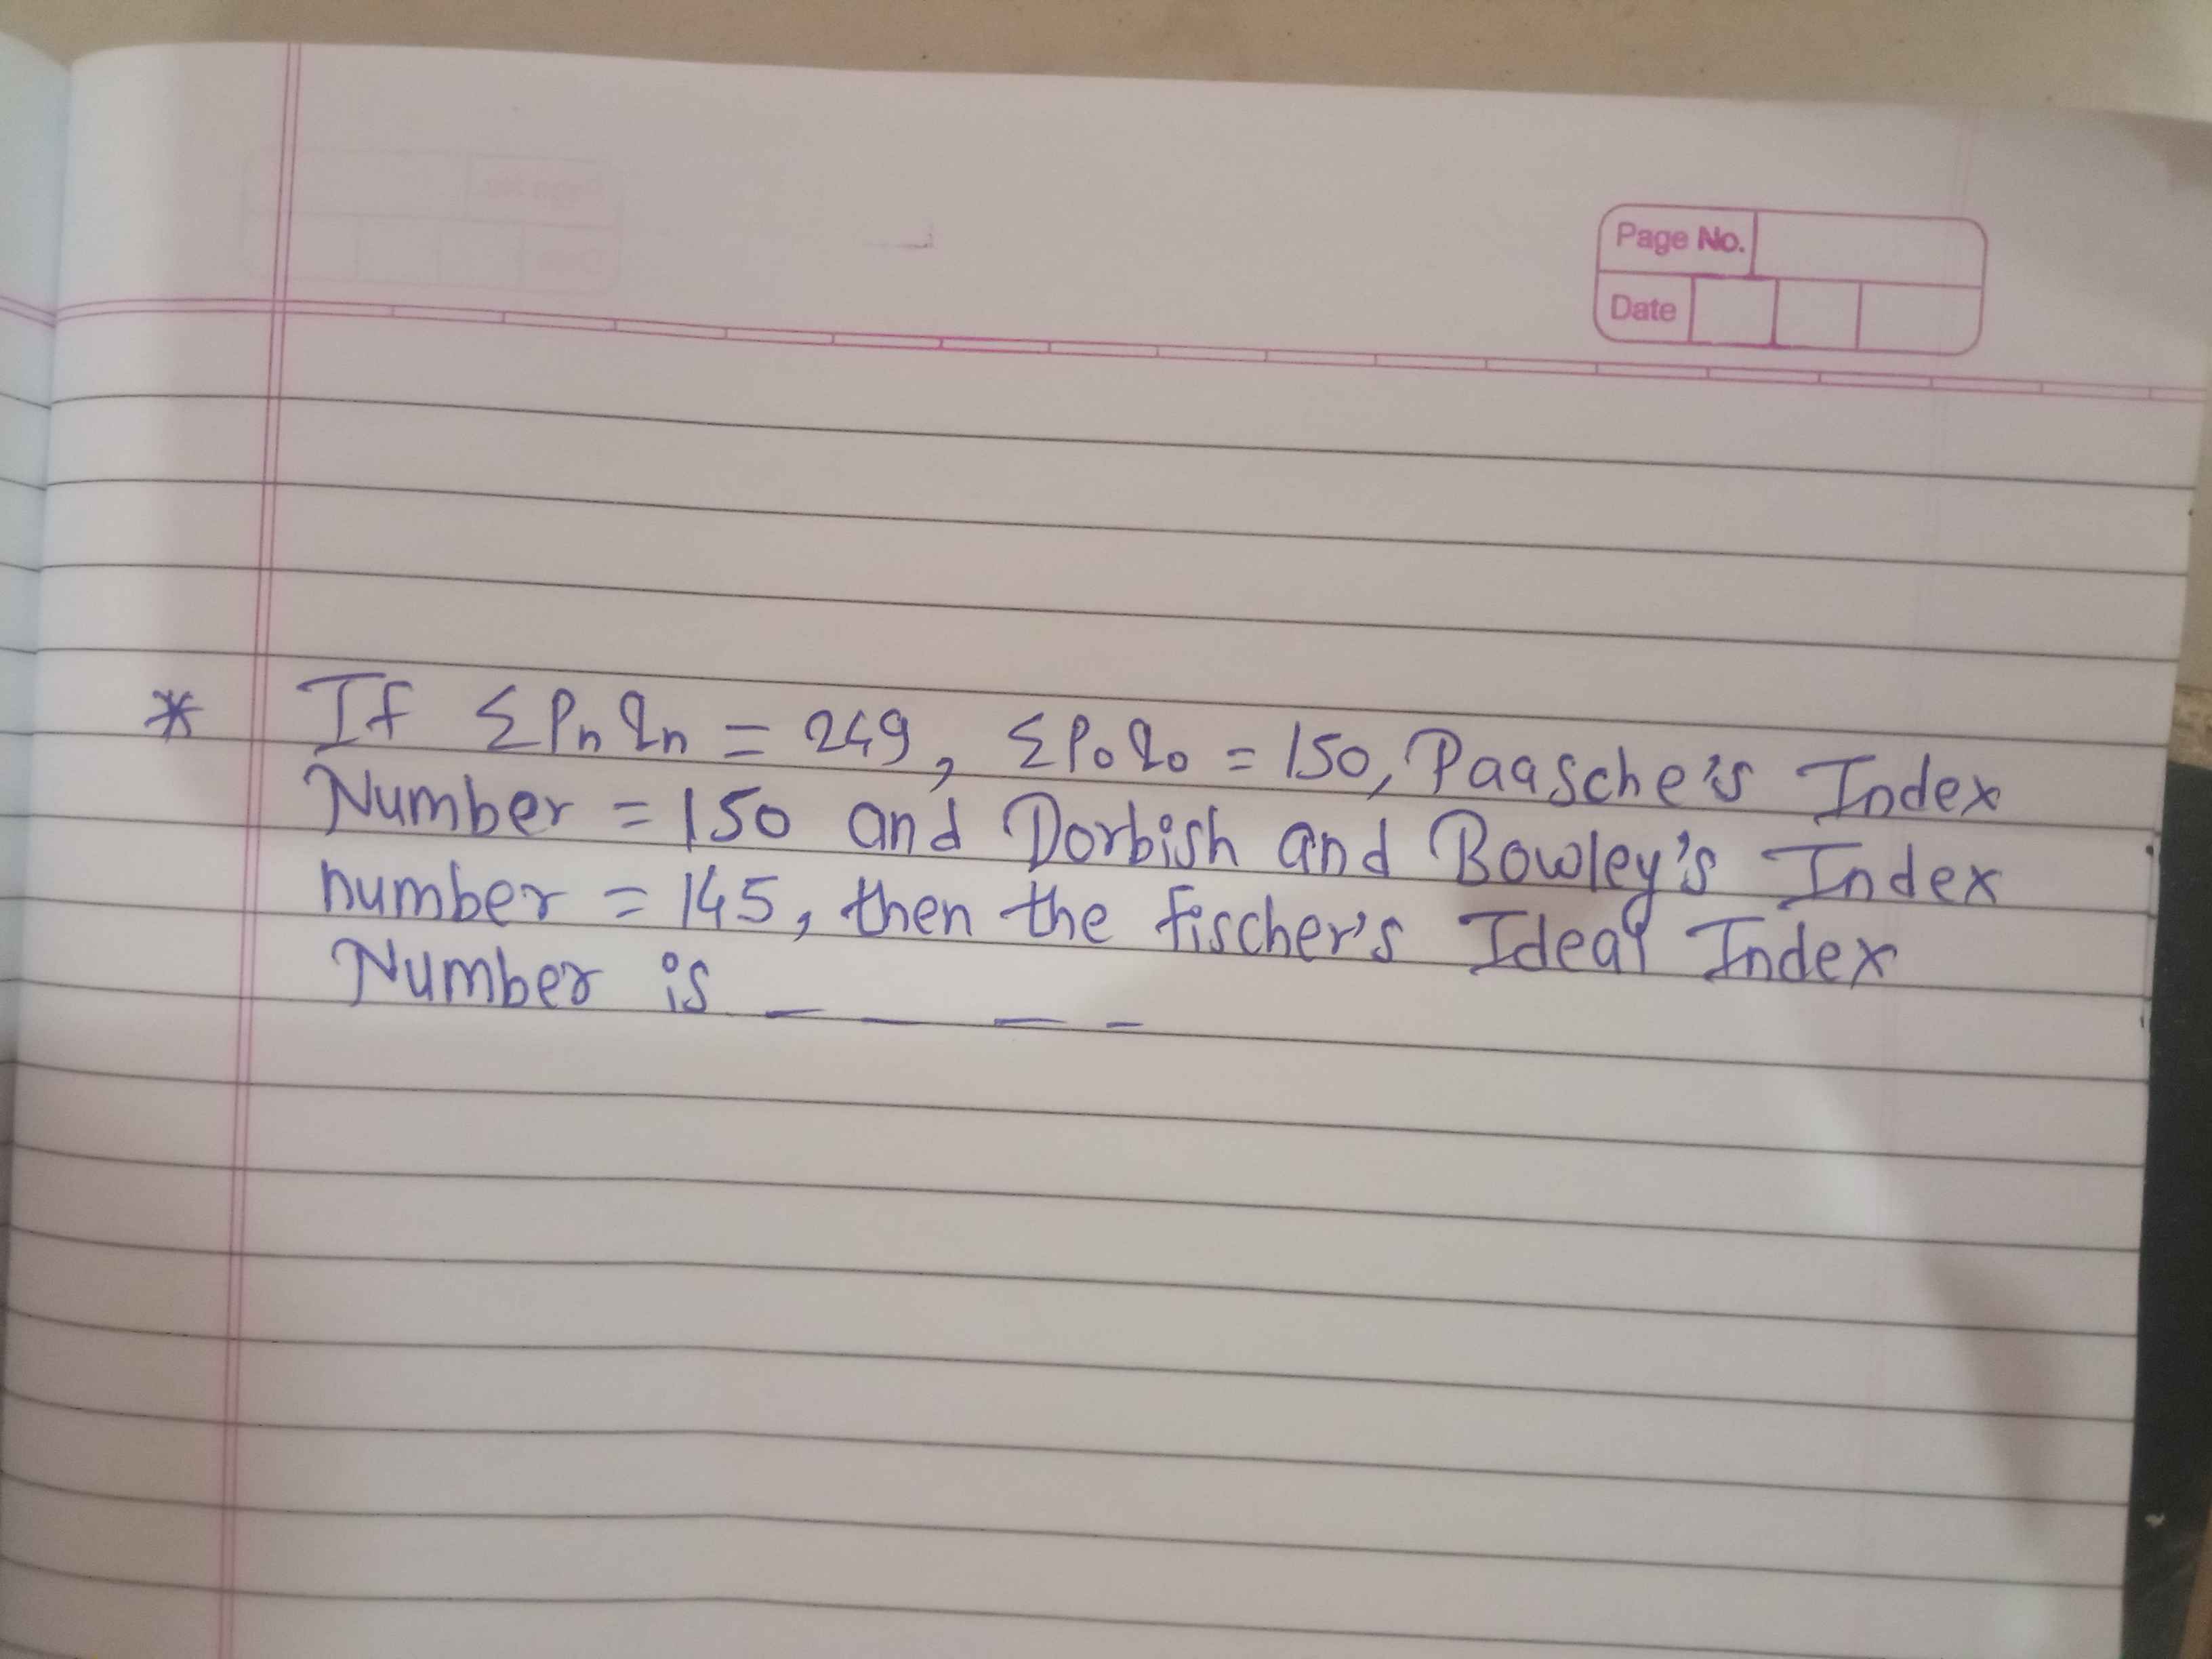 Page No.
Date
* If ΣPnqn = 249, ΣPoqo = 150, Paasche's Index
Number = 150 and Dorbish and Bowley's Index
number = 145, then the fischer's Ideal Index
Number is _ _ _ _